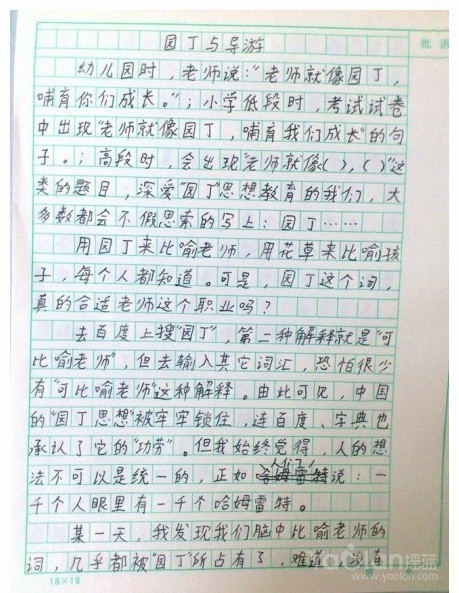 批语
园丁与导游
幼儿园时，老师说：“老师就像园丁，
哺育你们成长。”；小学低段时，考试试卷
中出现“老师就像园丁，哺育我们成长”的句
子。；高段时，会出现“老师就像（），（）”这
类的题目，深爱“园丁”思想教育的我们，大
多数都会不假思索的写上：园丁……
用园丁来比喻老师，用花草来比喻孩
子，每个人都知道。可是，园丁这个词，
真的合适老师这个职业吗？
去百度上搜“园丁”，第二种解释就是“可
比喻老师”，但去输入其它词汇，恐怕很少
有“可比喻老师”这种解释。由此可见，中国
的“园丁思想”被牢牢锁住，连百度、字典也
承认了它的“功劳”。但我始终觉得，人的想
法不可以是统一的，正如人们说：一
千个人眼里有一千个哈姆雷特。
某一天，我发现我们脑中比喻老师的
词，几乎都被“园丁”所占有了，难道，没有
18×19
yaolan摇篮
www.yaolan.com